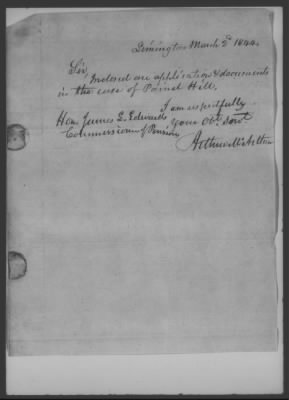 Limington March 2d 1844.
Sir,
Inclosed are application & documents
in the case of Parnel Hill,
I am respectfully
Hon. James L. Edwards your Obt. Servt.
Commissioner of Pensions
Arthur McArthur